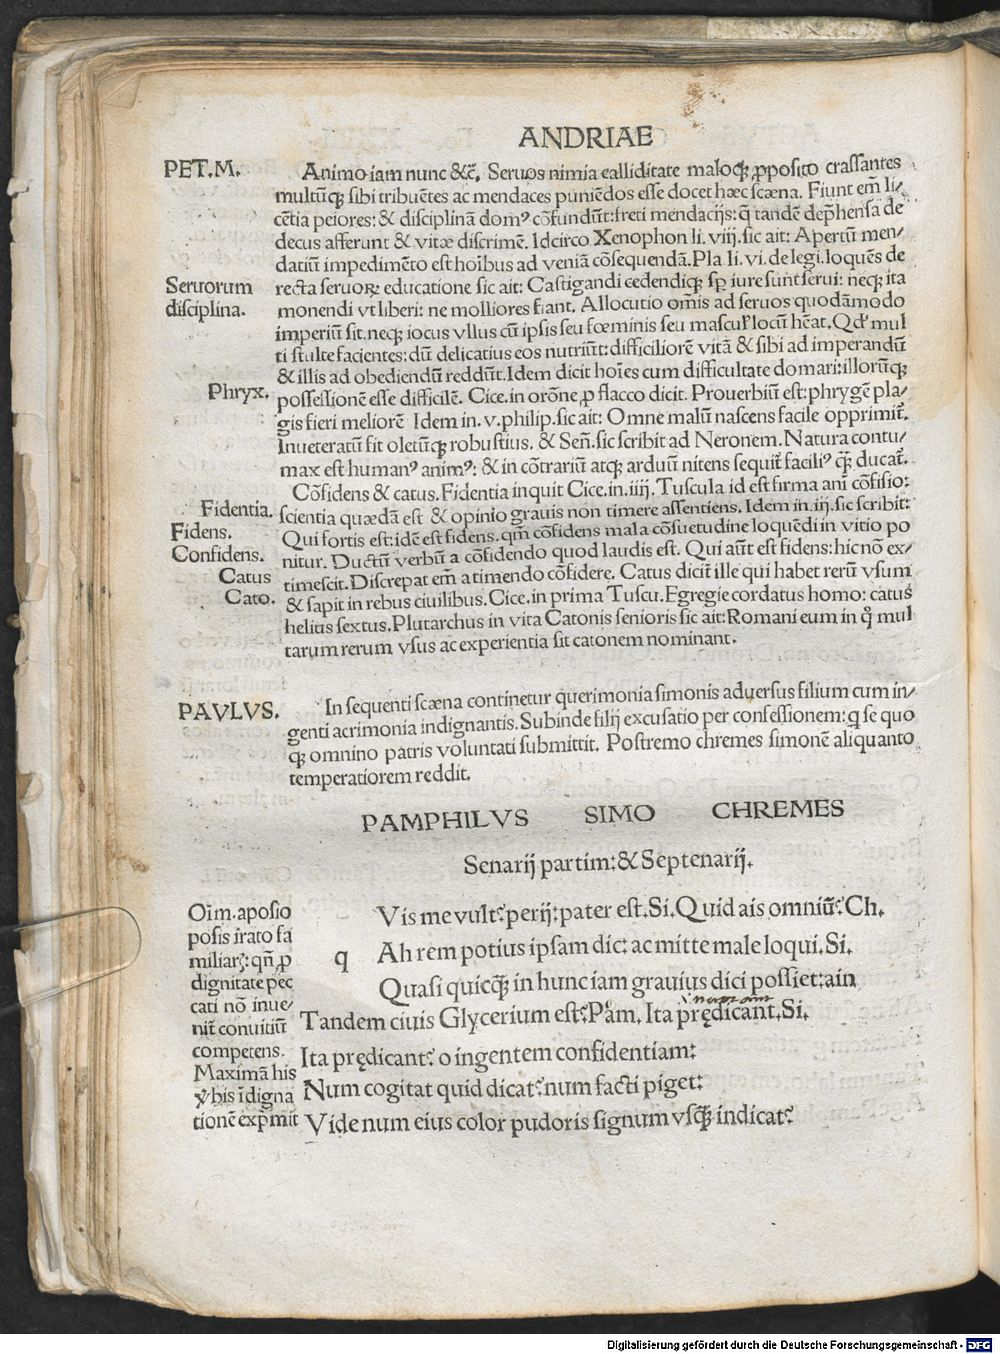 ANDRIAE
PET.M.
Animo iam nunc &c̃. Seruos nimia calliditate maloq; ꝓposito crassantes
multũq; sibi tribuẽtes ac mendaces puniẽdos esse docet hæc scæna. Fiunt em̃ li⸗
cẽtia peiores: & disciplinã domꝰ cõfundũt: freti mendacijs: q̃ tandẽ dep̃hensa de
decus afferunt & vitæ discrimẽ. Idcirco Xenophon li. viij. sic ait: Apertũ men⸗
datiũ impedimẽto est hoĩbus ad veniã cõsequendã. Pla. li. vi. de legi. loquẽs de
Seruorum
disciplina.
recta seruoꝝ educatione sic ait: Castigandi cedendiq; sp̱ iure sunt serui: neq; ita
monendi vt liberi: ne molliores fiant. Allocutio om̃is ad seruos quodãmodo
imperiũ sit. neq; iocus vllus cũ ipsis seu fœminis seu mascul̕ locũ hẽat. Qd̕ mul
ti stulte facientes: dũ delicatius eos nutriũt: difficiliorẽ vitã & sibi ad imperandũ
& illis ad obediendũ reddũt. Idem dicit hoĩes cum difficultate domari: illorũq;
Phryx.
possessionẽ esse difficilẽ. Cice. in orõne ꝓ flacco dicit. Prouerbiũ est: phrygẽ pla⸗
gis fieri meliorẽ Idem in. v. philip. sic ait: Omne malũ nascens facile opprimit̃.
Inueteratũ fit oletũq; robustius. & Señ. sic scribit ad Neronem. Natura contu⸗
max est humanꝰ animꝰ: & in cõtrariũ atq; arduũ nitens sequit̃ faciliꝰ q̃ ducat̃.
Cõfidens & catus. Fidentia inquit Cice. in. iiij. Tuscula id est firma ani cõfisio:
Fidentia.
scientia quædã est & opinio grauis non timere assentiens. Idem in. iij. sic scribit:
Fidens.
Qui fortis est: idẽ est fidens. qm̃ cõfidens mala cõsuetudine loquẽdi in vitio po
Confidens.
nitur. Ductũ verbũ a cõfidendo quod laudis est. Qui aũt est fidens: hic nõ ex⸗
Catus
timescit. Discrepat em̃ a timendo cõfidere. Catus dicit̃ ille qui habet rerũ vsum
Cato.
& sapit in rebus ciuilibus. Cice. in prima Tuscu. Egregie cordatus homo: catus
helius sextus. Plutarchus in vita Catonis senioris sic ait: Romani eum in q̊ mul
tarum rerum vsus ac experientia sit catonem nominant.
PAVLVS.
In sequenti scæna continetur querimonia simonis aduersus filium cum in⸗
genti acrimonia indignantis. Subinde filij excusatio per confessionem: q se quo
q; omnino patris voluntati submittit. Postremo chremes simonẽ aliquanto
temperatiorem reddit.
PAMPHILVS SIMO CHREMES
Senarij partim: & Septenarij.
Vis me vult? perij: pater est. Si. Quid ais omniũ? Ch.
q Ah rem potius ipsam dic: ac mitte male loqui. Si.
Quasi quicq̃ in hunc iam grauius dici possiet: ain
Tandem ciuis Glycerium est? Pam. Ita prędicant. Si.
Ita prędicant? o ingentem confidentiam:
Num cogitat quid dicat? num facti piget:
Vide num eius color pudoris signum vsq̃ indicat?
Oĩm. aposio
posis irato fa
miliaꝛ: qñ ꝓ
dignitate pec
cati nõ inue⸗
nit̃ conuitiũ
competens.
Maximã his
ꝟbis ĩdigna
tionẽ exp̃mit
Digitalisierung gefördert durch die Deutsche Forschungsgemeinschaft - DFG